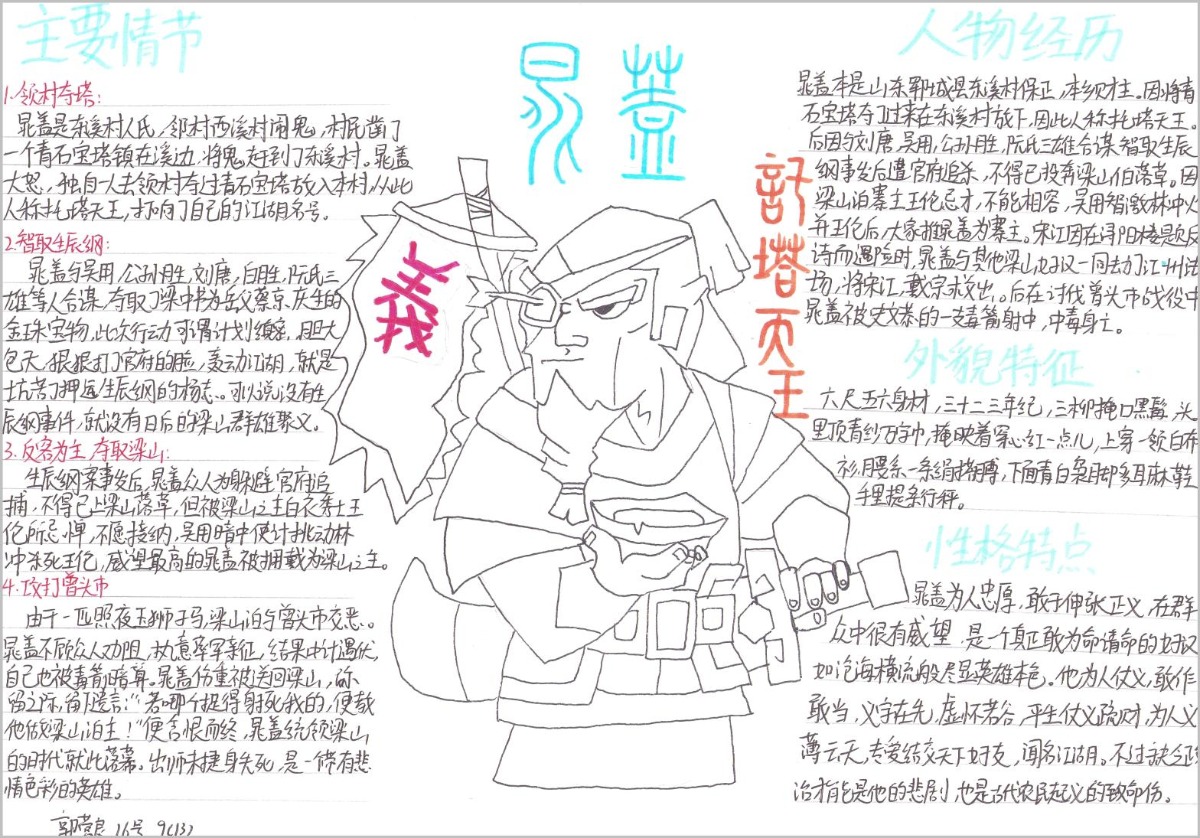 主要情节
1.领村夺塔:
晁盖是东溪村人氏,邻村西溪村闹鬼,村民凿了
一个青石宝塔镇在溪边,将鬼赶到了东溪村。晁盖
大怒,独自一人去领村夺过青石宝塔放入本村,从此
人称托塔天王,打响了自己的江湖名号。
2.智取生辰纲:
晁盖与吴用,公孙胜,刘唐,白胜,阮氏三
雄等人合谋,夺取了梁中书为岳父蔡京庆生的
金珠宝物,此次行动可谓计划缜密,胆大
包天,狠狠打了官府的脸,轰动江湖,就是
坑苦了押运生辰纲的杨志。可以说没有生
辰纲事件,就没有日后的梁山群雄聚义。
3.反客为主,夺取梁山:
生辰纲案事发后,晁盖众人为躲避官府追
捕,不得已上梁山落草,但被梁山之主白衣秀士王
伦所忌惮,不愿接纳,吴用暗中使计挑动林
冲杀死王伦,威望最高的晁盖被拥戴为梁山之主。
4.攻打曾头市
由于一匹照夜玉狮子马,梁山泊与曾头市交恶。
晁盖不顾众人劝阻,执意率军亲征,结果中计遇伏,
自己也被毒箭暗算。晁盖伤重被送回梁山,弥
留之际,留下遗言:“若哪个捉得射死我的,便教
他做梁山泊主!”便含恨而终,晁盖统领梁山
的时代就此落幕。出师未捷身先死,是一个带有悲
情色彩的英雄。
16号 9(13)
晁盖
託塔天王
義
人物经历
晁盖本是山东郓城县东溪村保正,本乡财主。因将青
石宝塔夺了过来在东溪村放下,因此人称托塔天王。
后因与刘唐,吴用,公孙胜,阮氏三雄合谋智取生辰
纲事发后遭官府追杀,不得已投奔梁山伯落草。因
梁山泊寨主王伦忌才,不能相容,吴用智激林中火
并王伦后,大家推晁盖为寨主。宋江因在浔阳楼题反
诗而遇险时,晁盖与其他梁山好汉一同去劫了江州法
场,将宋江,戴宗救出,。后在讨伐曾头市战役中
晁盖被史文恭的一支毒箭射中,中毒身亡。
外貌特征
六尺五六身材,三十二三年纪,三柳掩口黑髯,头
里顶青纱万字巾,掩映着穿心红一点儿,上穿一领白布
衫,腰系一条绢搭膊,下面青白枭脚多耳麻鞋
手里提条行秤。
性格特点
晁盖为人忠厚,敢于伸张正义,在群
众中很有威望,是一个真正敢为命请命的好汉
如沧海横流般尽显英雄本色。他为人仗义,敢作
敢当,义字在先,虚怀若谷,平生仗义疏财,为人义
薄云天,专爱结交天下好友,闻名江湖。不过缺乏政
治才能是他的悲剧,也是古代农民起义的致命伤。